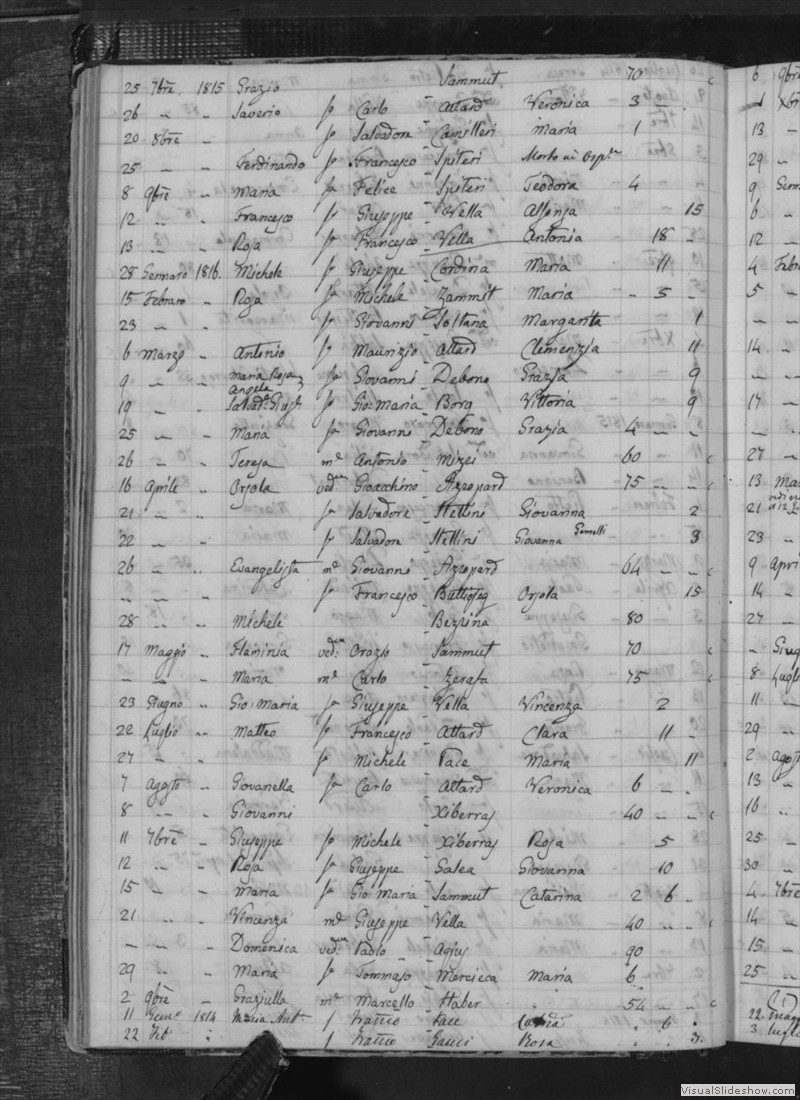 25 7bre 1815 Grazio Sammut 70 c
26 " " Saverio fo Carlo Attard Veronica 3 –
20 8bre – fo Salvadore Camilleri Maria 1
25 – – Ferdinando fo Francesco Spiteri Morto in Osple
8 9bre – Maria fo Felice Spiteri Teodora 4 –
12 – – Francesco fo Giuseppe Vella Alfonsa 15
13 – – Rosa fo Francesco Vella Antonia 18 –
28 Gennaro 1816 Michele fo Giuseppe Cordina Maria 11
15 Febraro – Rosa fo Michele Zammit Maria – 5 –
23 – – fo Giovanni Soltana Margarita 1
6 Marzo – Antonio fo Maurizio Attard Clemenzia 11
9 – – Maria Rosa Angela fo Giovanni Debono Grazia 9
19 – – Salvadr Giuse fo Gio Maria Borg Vittoria 9
25 – – Maria fo Giovanni Debono Grazia 4 – –
26 – – Teresa me Antonio Mizzi 60 – – c
16 Aprile – Orsola ved. Gioacchino Azzopard 75 – – c
21 – – fo Salvadore Stellini Giovanna 2
22 – fo Salvadore Stellini Giovanna Gemelli 3
26 – – Evangelista me Giovanni Azzopard 64 – – c
– – – fo Francesco Buttigieg Orsola 15
28 – – Michele Bezzina 80
17 Maggio – Flaminia ved. Orazio Sammut 70 c
– – – Maria me Carlo Zerafa 75 c
23 Giugno – Gio Maria fo Giuseppe Vella Vincenza 2
22 Luglio – Matteo fo Francesco Attard Clara 11 –
27 – fo Michele Pace Maria 11
7 Agosto – Giovanella fo Carlo Attard Veronica 6 –
8 – – Giovanni Xiberras 40 – – c
11 7bre – Giuseppe fo Michele Xiberras Rosa 5
12 – – Rosa fo Giuseppe Galea Giovanna 10
15 – – Maria fo Gio Maria Sammut Catarina 2 6 –
21 – – Vincenza me Giuseppe Vella 40 – – c
– – – Domenica ved. Paolo Agius 90
29 – – Maria fo Tommaso Mercieca Maria 6
2 9bre – Graziulla me Marcello Haber 54 – – c
11 Genro 1814 Maria Anta f Franco Pace 6
22 Feb f Franco Gauci Rosa
6 9bre
1 Xbre
13 –
29 –
9 Genn
6 –
12 –
4 Febr
5 –
– –
14 –
– –
17 –
– –
27 –
13 Mar
21
23 –
9 Apri
14 –
27 –
– Giug
8 Lugli
11 –
29 –
2 Agost
13 –
16 –
25 –
30 –
4 7bre
14 –
15 –
25 –
22 Mag
3 lugl
VisualSlideshow.com